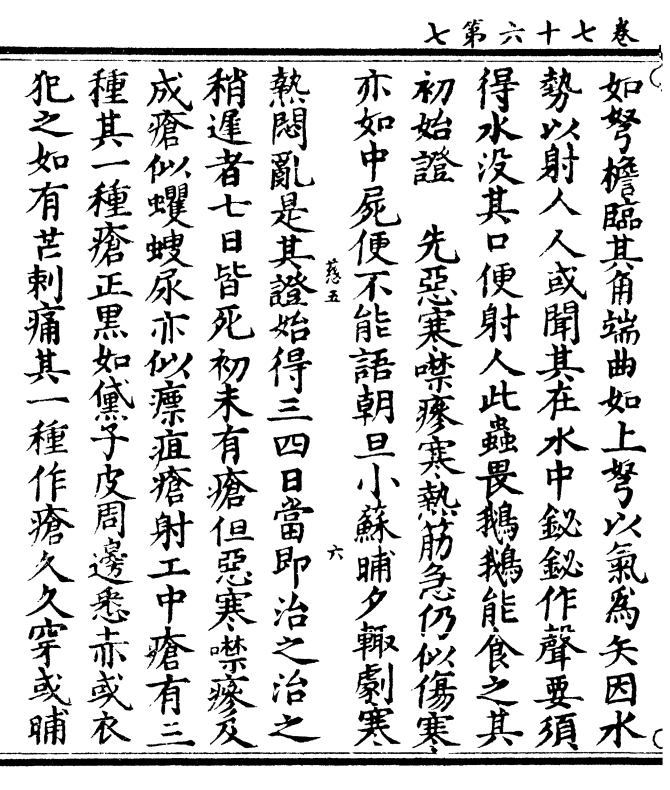 卷七十六第七
如弩檐臨其角端曲如上弩以氣爲矢因水
勢以射人人或聞其在水中鉍鉍作聲要須
得水没其口便射人此蟲畏鵝鵝能食之其
初始證　先惡寒噤瘮寒熱筋急仍似傷寒
亦如中屍便不能語朝旦小蘇晡夕輙劇寒
慈五
六
熱悶亂是其證始得三四日當即治之治之
稍遲者七日皆死初未有瘡但惡寒噤瘮及
成瘡似蠼螋尿亦似瘭疽瘡射工中瘡有三
種其一種瘡正黒如黛子皮周邊悉赤或衣
犯之如有芒刺痛其一種作瘡久久穿或晡